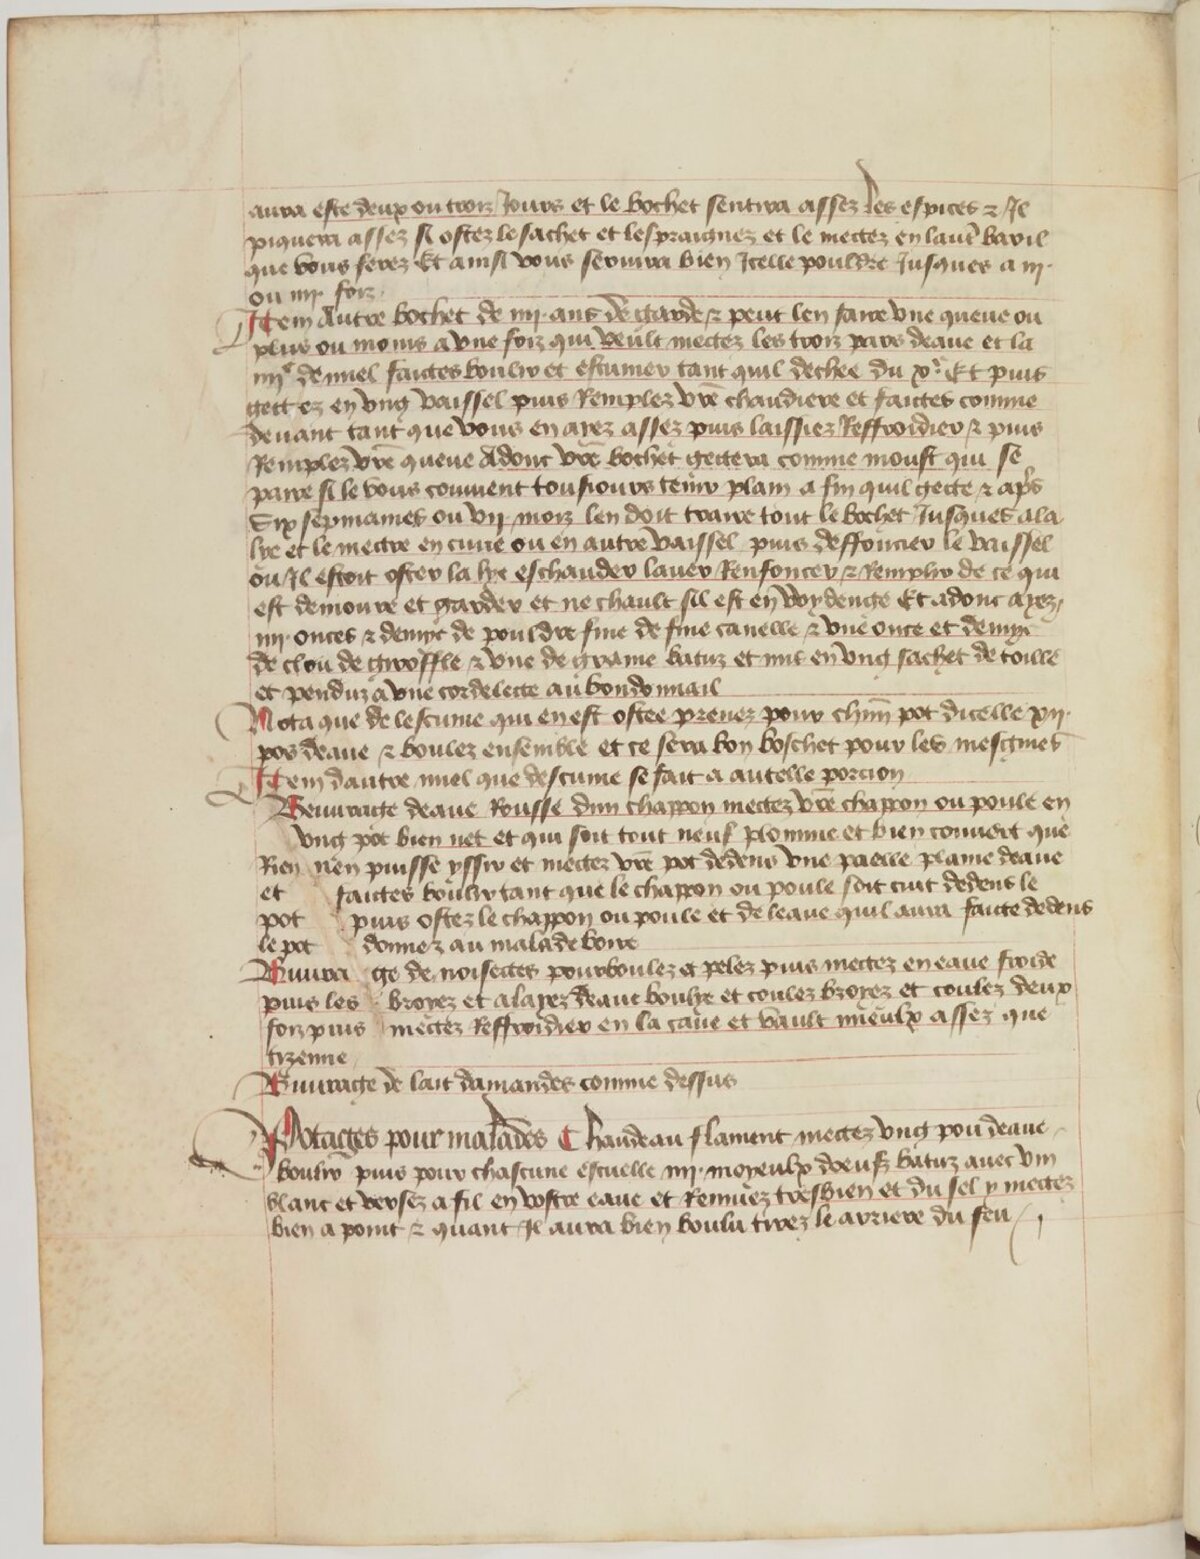 aura este deux ou troiz Jours et le bochet sentira assez les espices ⁊ Il
piquera assez si ostez le sachet et lespraignez et le mectez en laut̄ baril
que vous ferez Et ainsi vous servira bien Icelle pouldre Jusques a iij.
ou iiij. foiz
Item Autre bochet de iiij. ans de garde ⁊ peut len faire une queue ou
plus ou moins a une foiz qui veult mectez les troiz pars deaue et la
iiije de miel faictes boulir et escumer tant quil dechee du xe. Et puis
gectez en ung vaissel puis Remplez vr̄e chaudiere et faictes comme
devant tant que vous en ayez assez puis laissiez Reffroidier ⁊ puis
Remplez vr̄e queue Adonc vr̄e bochet gectera comme moust qui se
pare si le vous convient tousiours tenir plain a fin quil gecte ⁊ ap̄s
Six sepmaines ou vij. moiz len doit traire tout le bochet Jusques a la
lye et le mectre en cuve ou en autre vaissel puis deffoncier le vaissel
ou Il estoit oster la lye eschauder laver Renfoncer ⁊ Remplir de ce qui
est demoure et garder et ne chault sil est en voydenge Et adonc ayez
iiij. onces ⁊ demye de pouldre fine de fine canelle ⁊ une once et demye
de clou de girofle ⁊ une de graine batuz et mis en ung sachet de toille
et penduz a une cordelecte au bondonnail
Nota que de lescume qui en est ostee prenez pour chūn pot dicelle xij.
pos deaue ⁊ boulez ensemble et ce sera bon boschet pour les mesgnies
Item dautre miel que descume se fait a autelle porcion
Beuvrage deaue Rousse dun chappon mectez vr̄e chappon ou poule en
ung pot bien net et qui soit tout neuf plommé et bien couvert que
Rien nen puisse yssir et mectez vr̄e pot dedens une paelle plaine deaue
et faictes boulir tant que le chappon ou poule soit cuit dedens le
pot puis ostez le chappon ou poule et de leaue quil aura faicte dedens
le pot donnez au malade boire
Buvrage de noisectes pourboulez et pelez puis mectez en eaue froide
puis les broyez et alayez deaue boulye et coulez broyez et coulez deux
foiz puis mectez Reffroidier en la cave et vault mieulx assez que
tizenne
Buvrage de lait damandes comme dessus
Potages pour malades Chaudeau flament mectez ung pou deaue
boulir puis pour chascune escuelle iiij. moyeulx doeufz batuz avec vin
blanc et versez a fil en vostre eaue et Remuez tresbien et du sel y mectez
bien a point ⁊ quant Il aura bien boulu tirez le arriere du feu